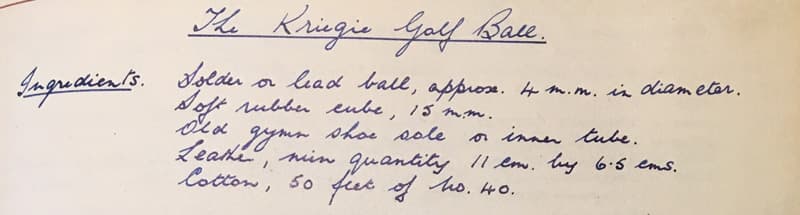 The Kriegie Golf Ball.
Ingredients. Solder or lead ball, approx. 4 m.m. in diameter.
Soft rubber cube, 15 m.m.
Old gymn shoe sole or inner tube.
Leather, min quantity 11 cm. by 6.5 cms.
Cotton, 50 feet of No. 40.